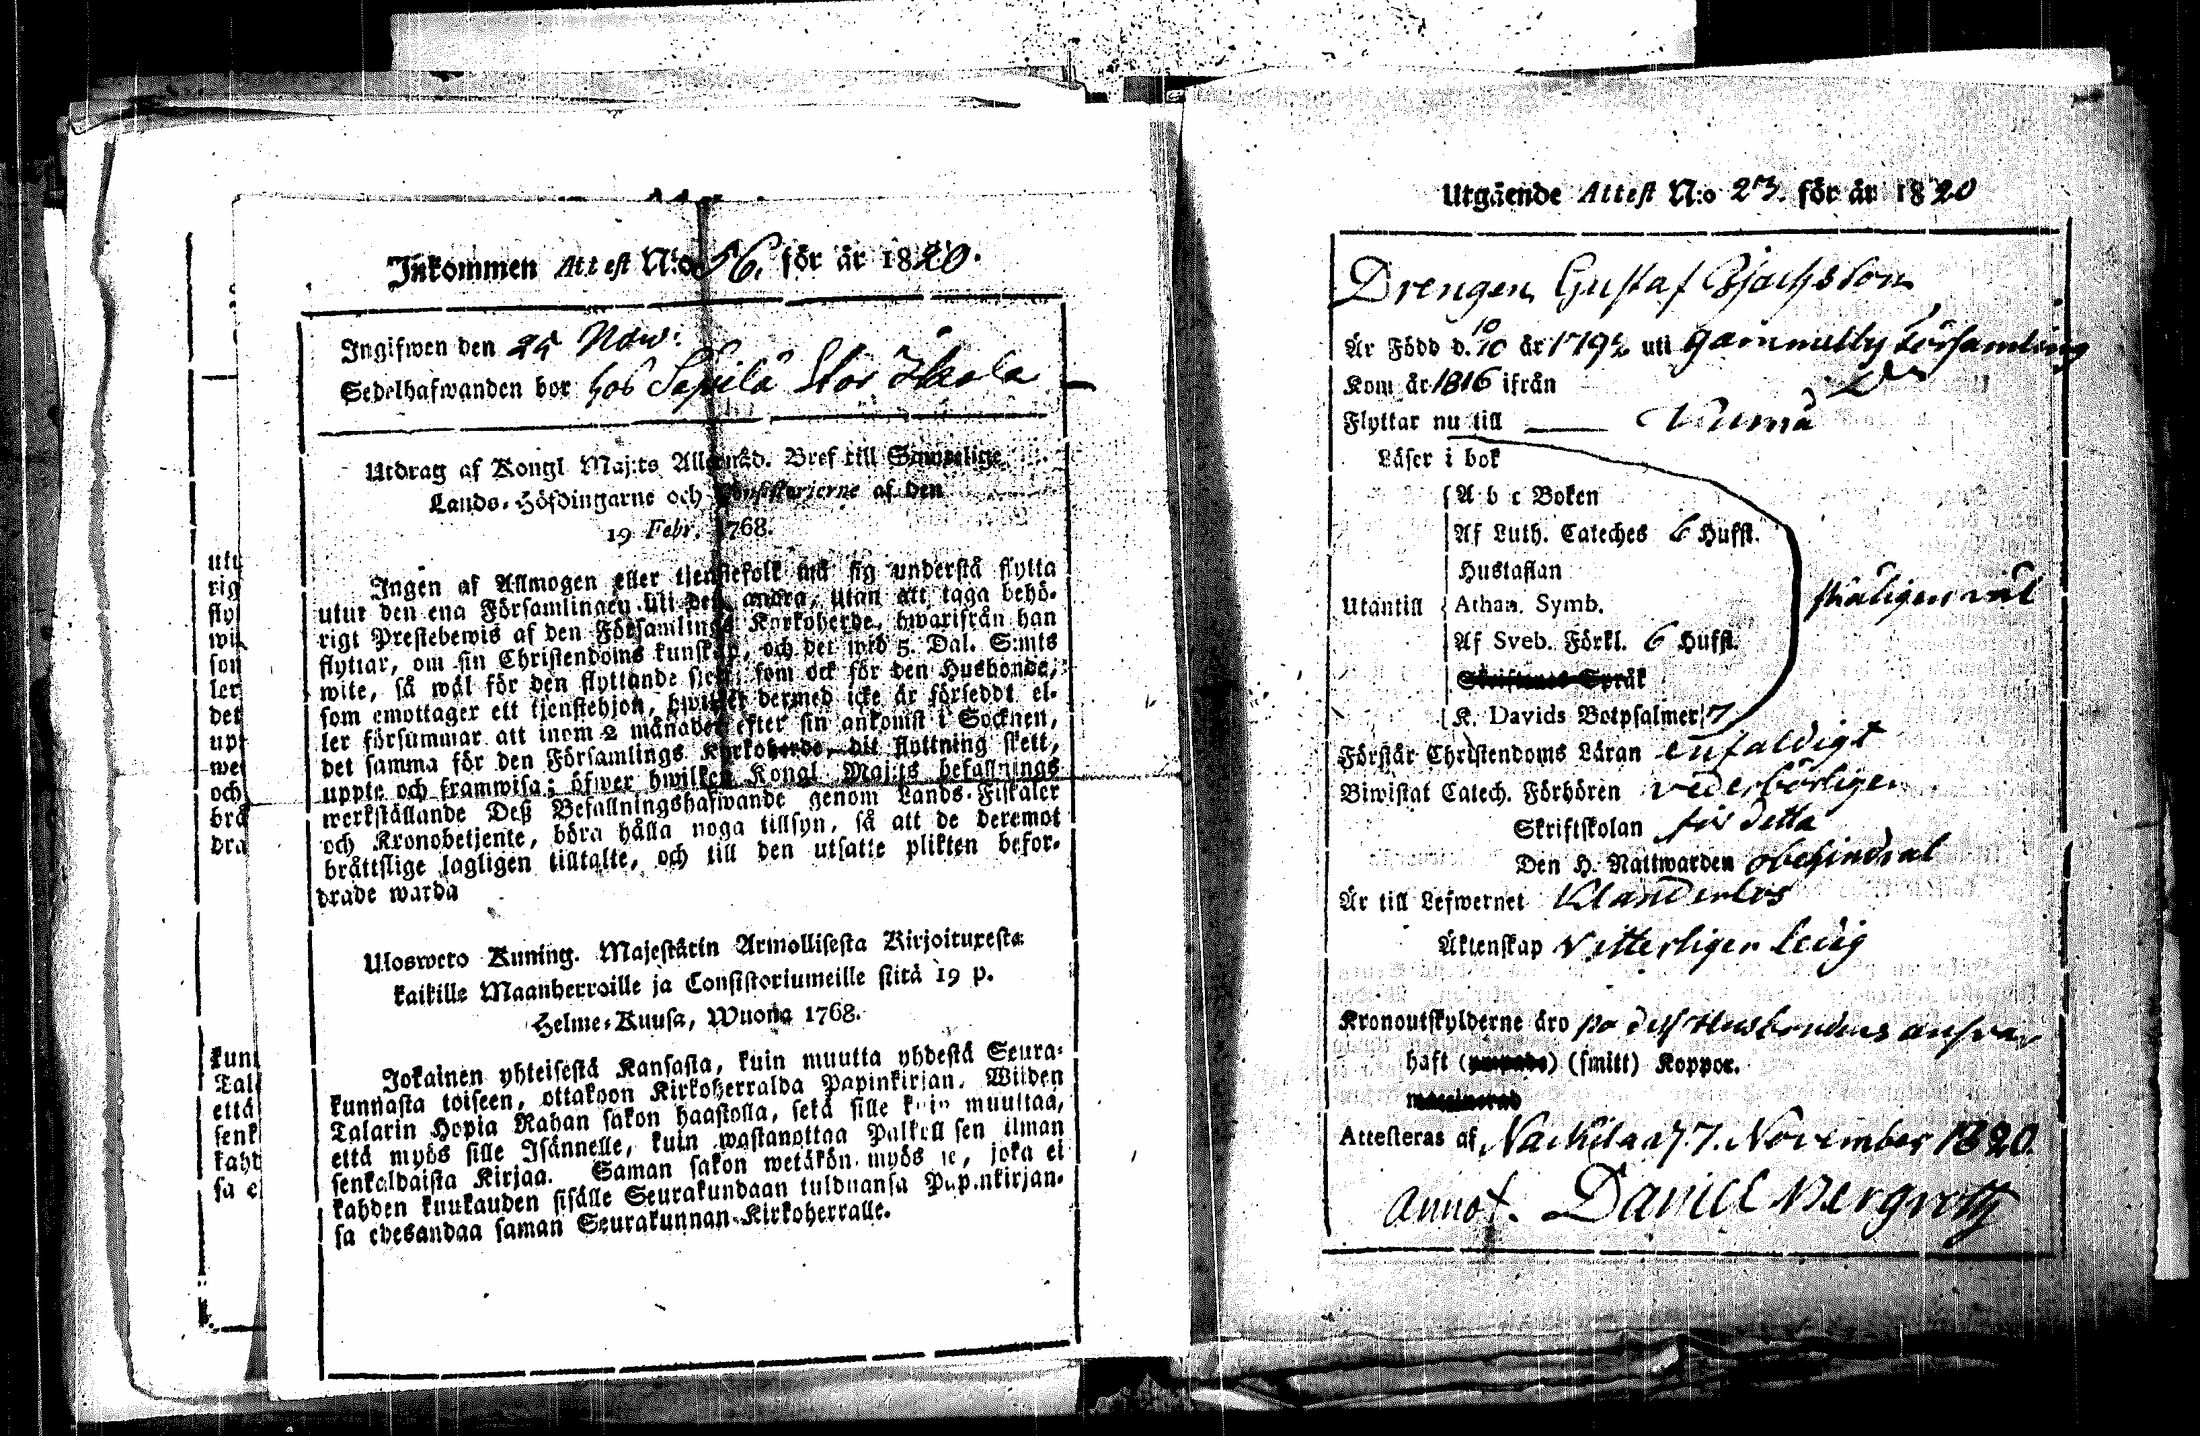 Inkommen Attest N:o 56. för år 1820.
Ingifwen den 25 Now:
Sedelhafwanden bor hos Sepilä Stor
Utdrag af Kongl Maj:ts Allernåd. Bref till Samtelige
Lands-Höfdingarne och Consistorierne af den
19 Febr. 1768.
Ingen af Allmogen eller tjenstefolk må sig understå flytta
utur den ena Församlingen uti den andra, utan att taga behö-
rigt Prestebewis af den Församlings Kyrkoherde, hwarifrån han
flyttar, om sin Christendoms kunskap, och det wid 5. Dal. S:mts
wite, så wäl för den flyttande sielf, som ock för den Husbonde,
som emottager ett tjenstehjon, hwilket dermed icke är försedt el-
ler försummar att inom 2 månader efter sin ankomst i Socknen,
det samma för den Församlings Kyrkoherde, dit flyttning skett,
uppte och framwisa; öfwer hwilket Kongl Maj:ts befallnings
werkställande Deß Befallningshafwande genom Lands-Fiskaler
och Kronobetjente, böra hålla noga tillsyn, så att de deremot
bråttslige lagligen tilltalte, och till den utsatte plikten befor-
drade warda
Uloswето Kuning. Majestätin Armollisesta Kirjoituxesta
kaikille Maanherroille ja Consistoriumeille siitä 19 p.
Helme-Kuusa, Wuona 1768.
Jokainen yhteisestä Kansasta, kuin muutta yhdestä Seura-
kunnasta toiseen, ottakoon Kirkoherralda Papinkirjan. Wiiden
Talarin Hopia Rahan sakon haastolla, sekä sille kuin muuttaa,
että myös sille Isännelle, kuin wastanottaa Palkollisen ilman
senkaldaista Kirjaa. Saman sakon wetäkön myös se, joka ei
kahden kuukauden sisälle Seurakundaan tulduansa Papinkirjan-
sa edesandaa saman Seurakunnan Kirkoherralle.
Utgående Attest N:o 23. för år 1820
Drengen Gustaf
Är Född d. 10/10 år 1792 uti Församling
Kom år 1816 ifrån
Flyttar nu till
Läser i bok
A b c Boken
Af Luth. Cateches 6 Hufst.
Hustaflan
Utantill Athan. Symb.
Af Sveb. Förkl. 6 Hufst.
Skriftenes Språk
K. Davids Botpsalmer 7
skäligen väl
Förstår Christendoms Läran enfaldigt
Biwistat Catech. Förhören vederbörligen
Skriftskolan för detta
Den H. Nattwarden obehindrat
Är till Lefwernet Klanderlös
Äktenskap Vitterligen ledig
Kronoutskylderne äro på dess Husbondens answar
haft (smitt) Koppor.
Attesteras af Nackila d 7. November 1820.
annot. Daniel Bergroth